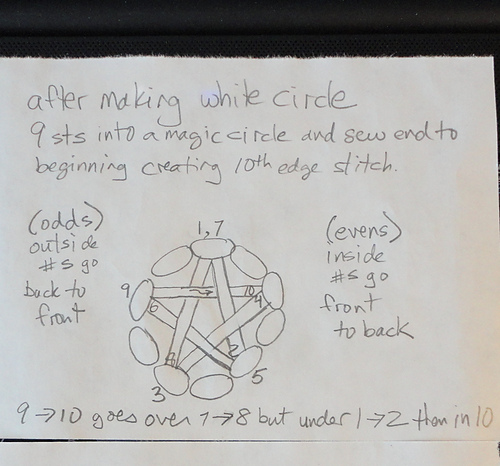 after making white circle
9 sts into a magic circle and sew end to
beginning creating 10th edge stitch.
(odds)
outside
#s go
back to
front
1,7
9
6
10
4
8
2
3
5
(evens)
inside
#s go
front
to back
9→10 goes over 7→8 but under 1→2 then in 10